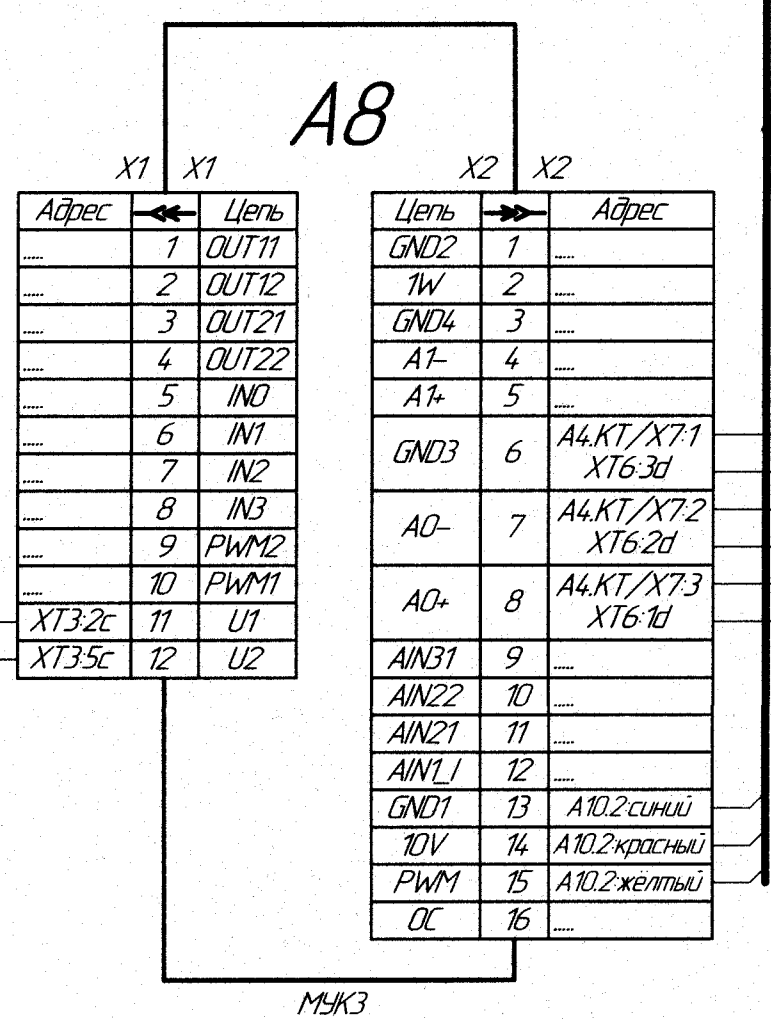 А8
X1 X1
X2 X2
Адрес Цепь
..... 1 OUT11
..... 2 OUT12
..... 3 OUT21
..... 4 OUT22
..... 5 IN0
..... 6 IN1
..... 7 IN2
..... 8 IN3
..... 9 PWM2
..... 10 PWM1
XT3:2c 11 U1
XT3:5c 12 U2
Цепь Адрес
GND2 1 .....
1W 2 .....
GND4 3 .....
A1– 4 .....
A1+ 5 .....
GND3 6 A4.KT/X7:1
XT6:3d
A0– 7 A4.KT/X7:2
XT6:2d
A0+ 8 A4.KT/X7:3
XT6:1d
AIN31 9 .....
AIN22 10 .....
AIN21 11 .....
AIN1_I 12 .....
GND1 13 A10.2:синий
10V 14 A10.2:красный
PWM 15 A10.2:жёлтый
OC 16 .....
МУК3